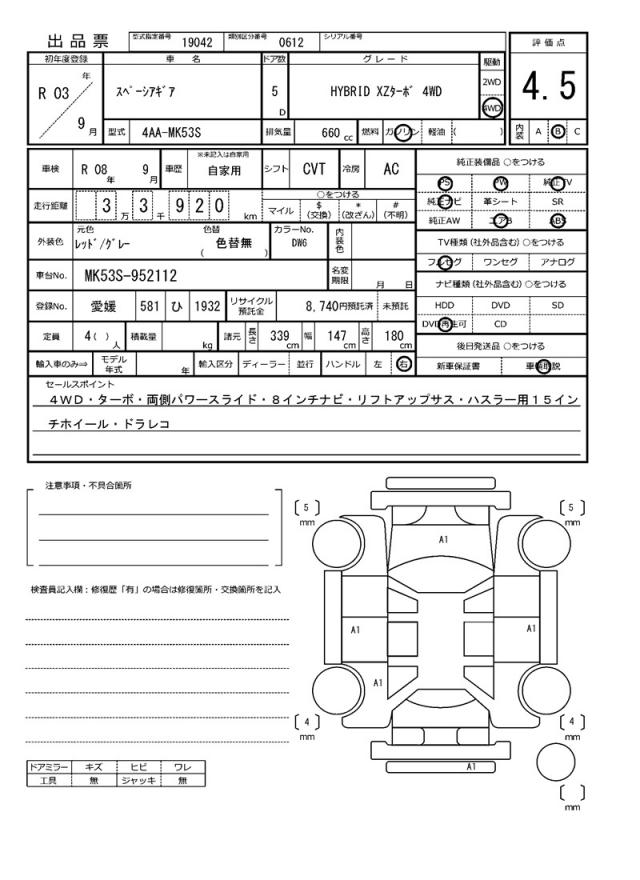 出品票 型式指定番号 19042 類別区分番号 0612 シリアル番号
評価点
4.5
内装 A B C
初年度登録 車名 ドア数 グレード 駆動
R 03 年 9 月
ｽﾍﾟｰｼｱｷﾞｱ
5 D
HYBRID XZﾀｰﾎﾞ 4WD
2WD
4WD
型式 4AA-MK53S 排気量 660 cc 燃料 ガソリン 軽油 ( )
車検 R 08 年 9 月 車歴 ※未記入は自家用 自家用 シフト CVT 冷房 AC
走行距離 3 万 3 千 9 2 0 km
○をつける
マイル $ (交換) * (改ざん) # (不明)
外装色 元色 ﾚｯﾄﾞ/ｸﾞﾚｰ 色替 ( 色替無 ) カラーNo. DW6 内装色
車台No. MK53S-952112 名変期限 月 日
登録No. 愛媛 581 ひ 1932 リサイクル預託金 8,740円預託済 未預託
定員 4( ) 人 積載量 kg 諸元 長さ 339 cm 幅 147 cm 高さ 180 cm
輸入車のみ⇒ モデル年式 年 輸入区分 ディーラー 並行 ハンドル 左 右
純正装備品 ○をつける
PS PW 純正TV
純正ナビ 革シート SR
純正AW エアB ABS
TV種類 (社外品含む) ○をつける
フルセグ ワンセグ アナログ
ナビ種類 (社外品含む) ○をつける
HDD DVD SD
DVD再生可 CD
後日発送品 ○をつける
新車保証書 車輌取説
セールスポイント
４ＷＤ・ターボ・両側パワースライド・８インチナビ・リフトアップサス・ハスラー用１５イン
チホイール・ドラレコ
注意事項・不具合箇所
検査員記入欄：修復歴「有」の場合は修復箇所・交換箇所を記入
ドアミラー キズ ヒビ ワレ
工具 無 ジャッキ 無
[ 5 ] mm
[ 5 ] mm
A1
A1
A1
A1
[ 4 ] mm
[ 4 ] mm
A1
[ ] mm